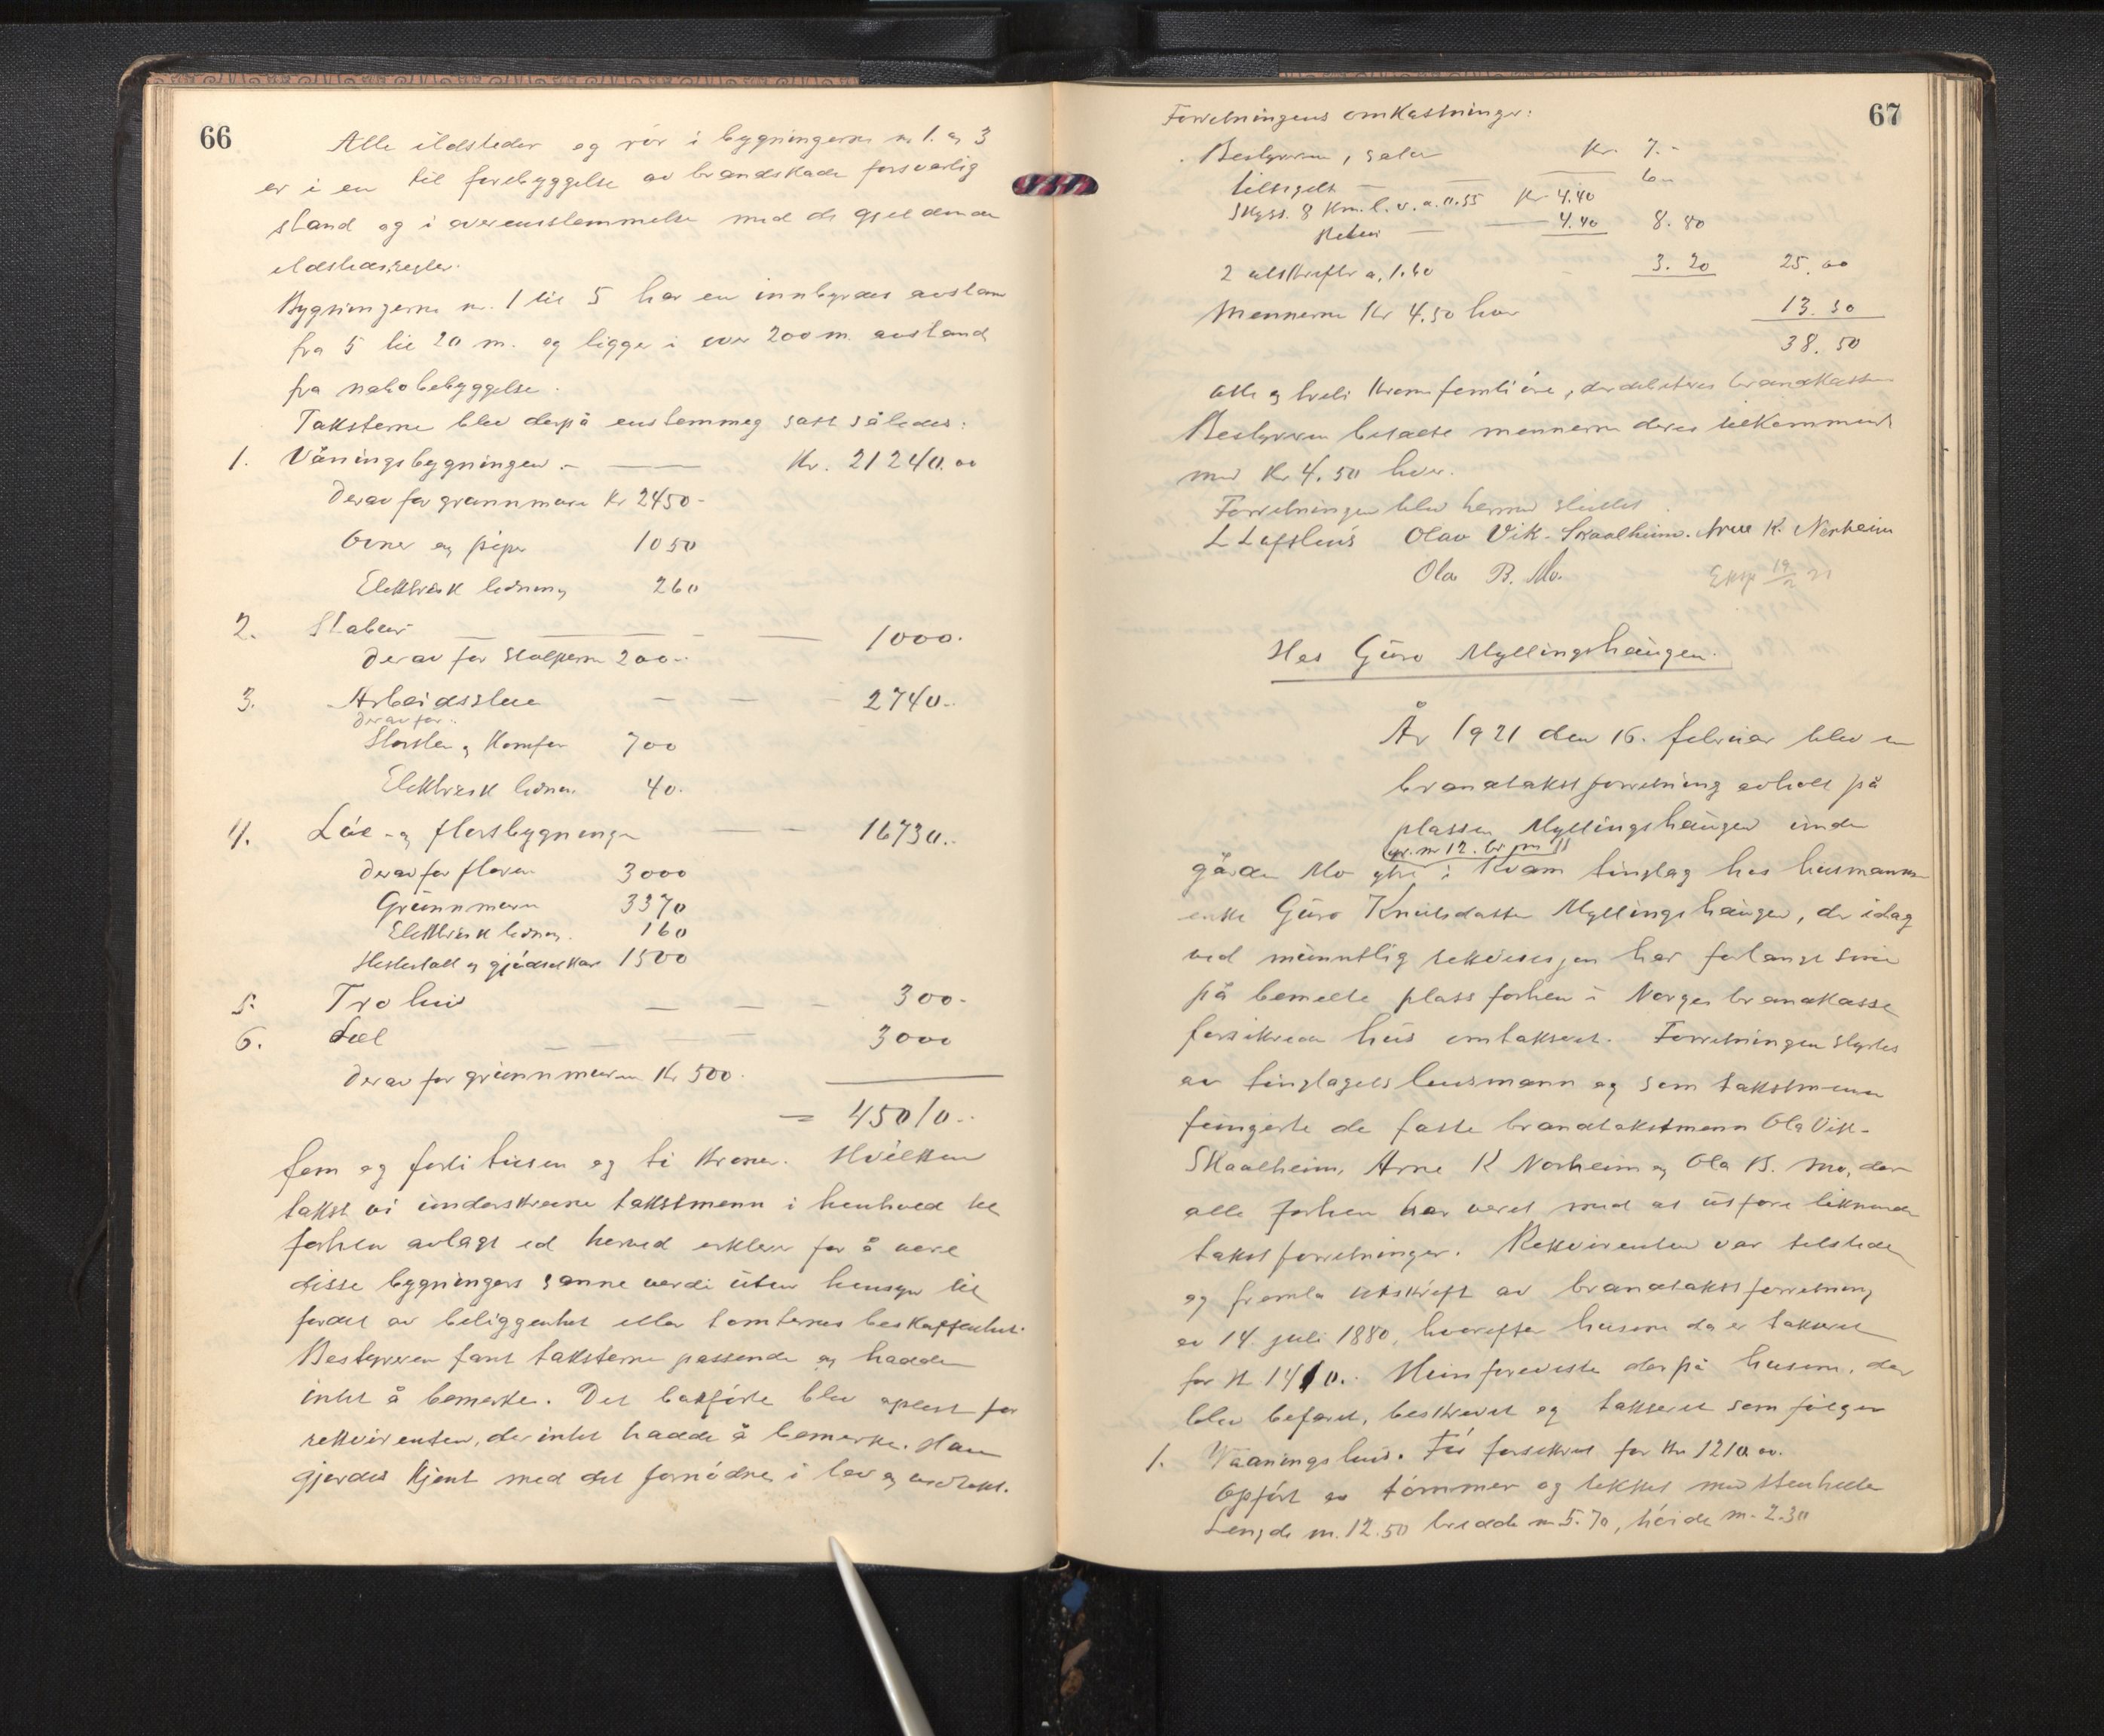 66
Alle ildsteder og rör i bygningerne nr 1. og 3
er i en til forebyggelse av brandskade forsvarlig
stand og i overensstemmelse med de gjeldende
ildstedsregler.
Bygningerne nr. 1 til 5 har en innbyrdes avstand
fra 5 til 20 m. og ligger i over 200 m. avstand
fra nabobebyggelse.
Taksterne blev derpå enstemmeg satt således:
1. Våningsbygningen. - Kr. 21240.00
Derav for grunnmure Kr 2450-
Ovner og piper 1050
Elektrisk ledning 260
2. Stabur 1000.
Derav for stolperne 200.-
3. Arbeidsstue 2740.-
Derav for:
Skorsten og Komfur 700
Elektrisk ledn. 40.
4. Löe- og florsbygningen 16730.-
Derav for floren 3000
Grunnmuren 3370
Elektrisk ledning. 160
Hestestall og gjödselkar 1500
5. Tro hus 300.-
6. Löe 3000
Derav for grunnmuren Kr 500.
= 45010.-
fem og forti tusen og ti kroner. Hvilken
takst vi underskrevne takstmenn i henhold til
forhen avlagt ed herved erklerer for å vere
disse bygningers sanne verdi uten hensyn til
fordel av beliggenhet eller tomternes beskaffenhet.
Bestyreren fant taksterne passende og hadde
intet å bemerke. Det bokförte blev oplest for
rekvirenten, der intet hadde å bemerke. Han
gjordes kjent med det fornödne i lov og vedtekt.
67
Forretningens omkostninger:
Bestyreren, salær Kr. 7.-
tilsigelse 6-
Skyss. 8 Km. l. v. a. 0.55 Kr 4.40
Retur 4.40 8.80
2 utskrifter a. 1.60 3.20 25.00
Mennerne Kr 4.50 hver 13.50
38.50
otte og treti kroner femti öre, der debiteres brandkassen
Bestyreren betalte mennerne deres tilkommende
med Kr 4.50 hver.
Forretningen blev hermed sluttet.
L Lofthus Olav Vik-Skaalheim. Arne K. Norheim
Ola B. Mo. Eksp 19/2 21
Hos Guro Myllingshaugen.
År 1921 den 16. februar blev en
brandtakstforretning avholt på
plassen Myllingshaugen under
gr. nr 12. br nr
gården Mo i Kvam tinglag hos husmanns
enke Guro Knutsdatter Myllingshaugen, der idag
ved munntlig rekvisisjon har forlangt sine
på bemelte plass forhen i Norges brandkasse
forsikrede hus omtakseret. Forretningen styrtes
av tinglagets lensmann og som takstmenn
fungerte de faste brandtakstmenn Ola Vik-
Skaalheim, Arne K Norheim og Ola B. Mo, der
alle forhen har veret med at utföre liknende
takstforretninger. Rekvirenten var tilstede
og fremla utskrift av brandtakstforretning
av 14. juli 1880, hvorefter husene da er takseret
for Kr 1410.- Hun foreviste derpå husene, der
blev befaret, beskrevet og takseret som fölger
1. Vaaningshus. För forsikret for Kr 1210.00.
Opfört av tömmer og tekket med stenheller
Lengde m. 12.50 bredde m 5.70, höide m. 2.30